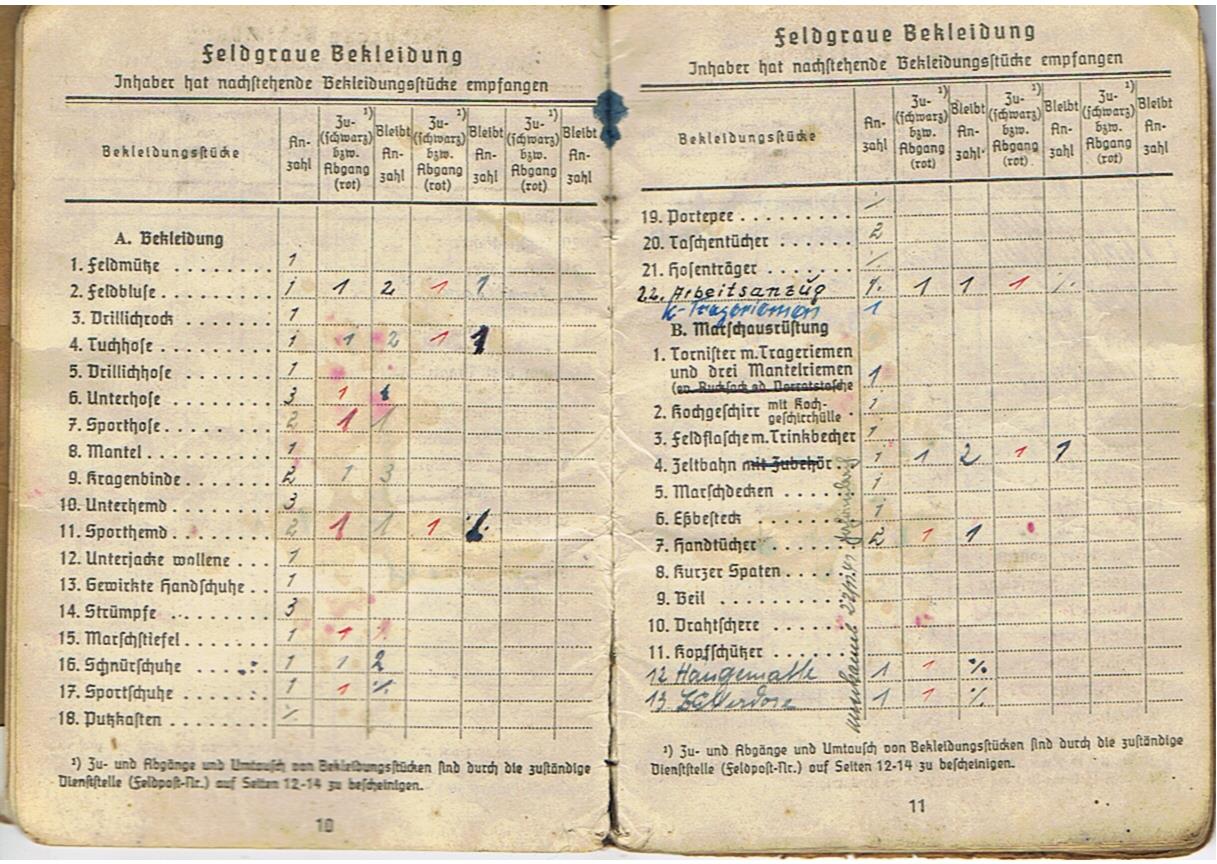 Feldgraue Bekleidung
Inhaber hat nachstehende Bekleidungsstücke empfangen
Bekleidungsstücke | An-zahl | Zu- ¹) (schwarz) bzw. Abgang (rot) | Bleibt An-zahl | Zu- ¹) (schwarz) bzw. Abgang (rot) | Bleibt An-zahl | Zu- ¹) (schwarz) bzw. Abgang (rot) | Bleibt An-zahl
A. Bekleidung
1. Feldmütze . . . . . . . . 1
2. Feldbluse . . . . . . . . 1 1 2 1 1
3. Drillichrock . . . . . . . 1
4. Tuchhose . . . . . . . . 1 1 2 1 1
5. Drillichhose . . . . . . . 1
6. Unterhose . . . . . . . . 3 1
7. Sporthose . . . . . . . . 2 1 1
8. Mantel . . . . . . . . . 1
9. Kragenbinde . . . . . . . 2 1 3
10. Unterhemd . . . . . . . 3
11. Sporthemd . . . . . . . 2 1 1 1
12. Unterjacke wollene . . . 1
13. Gewirkte Handschuhe . . 1
14. Strümpfe . . . . . . . . 3
15. Marschstiefel . . . . . . 1 1
16. Schnürschuhe . . . . . . 1 1 2
17. Sportschuhe . . . . . . . 1 1 %
18. Putzkasten . . . . . . . %
¹) Zu- und Abgänge und Umtausch von Bekleidungsstücken sind durch die zuständige
Dienststelle (Feldpost-Nr.) auf Seiten 12-14 zu bescheinigen.
10
Feldgraue Bekleidung
Inhaber hat nachstehende Bekleidungsstücke empfangen
Bekleidungsstücke | An-zahl | Zu- ¹) (schwarz) bzw. Abgang (rot) | Bleibt An-zahl | Zu- ¹) (schwarz) bzw. Abgang (rot) | Bleibt An-zahl | Zu- ¹) (schwarz) bzw. Abgang (rot) | Bleibt An-zahl
19. Portepee . . . . . . . . %
20. Taschentücher . . . . . . 2
21. Hosenträger . . . . . . . %
22. Arbeitsanzug 1 1 1 %
K-Trageriemen 1
B. Marschausrüstung
1. Tornister m. Trageriemen
und drei Mantelriemen 1
(en. Rucksack od. Vorratstasche
2. Kochgeschirr mit Koch-geschirrhülle . 1
3. Feldflasche m. Trinkbecher 1
4. Zeltbahn mit Zubehör . . 1 1 2 1 1
5. Marschdecken . . . . . . 1
6. Eßbesteck . . . . . . . . 1
7. Handtücher . . . . . . . 2 1 1
8. Kurzer Spaten . . . . . .
9. Beil . . . . . . . . . .
10. Drahtschere . . . . . . .
11. Kopfschützer . . . . . .
12 Hangematte 1 1 %
13 1 1 %
¹) Zu- und Abgänge und Umtausch von Bekleidungsstücken sind durch die zuständige
Dienststelle (Feldpost-Nr.) auf Seiten 12-14 zu bescheinigen.
11